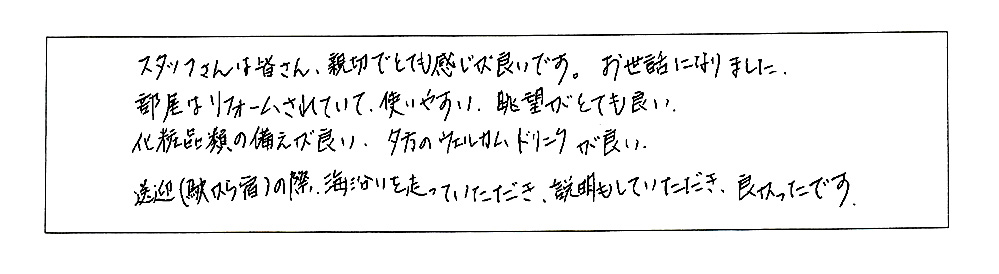 スタッフさんは皆さん、親切でとても感じが良いです。お世話になりました.
部屋はリフォームされていて、使いやすい、眺望がとても良い.
化粧品類の備えが良い、夕方のウェルカムドリンクが良い.
送迎(駅から宿)の際、海沿いを走っていただき、説明もしていただき、良かったです.